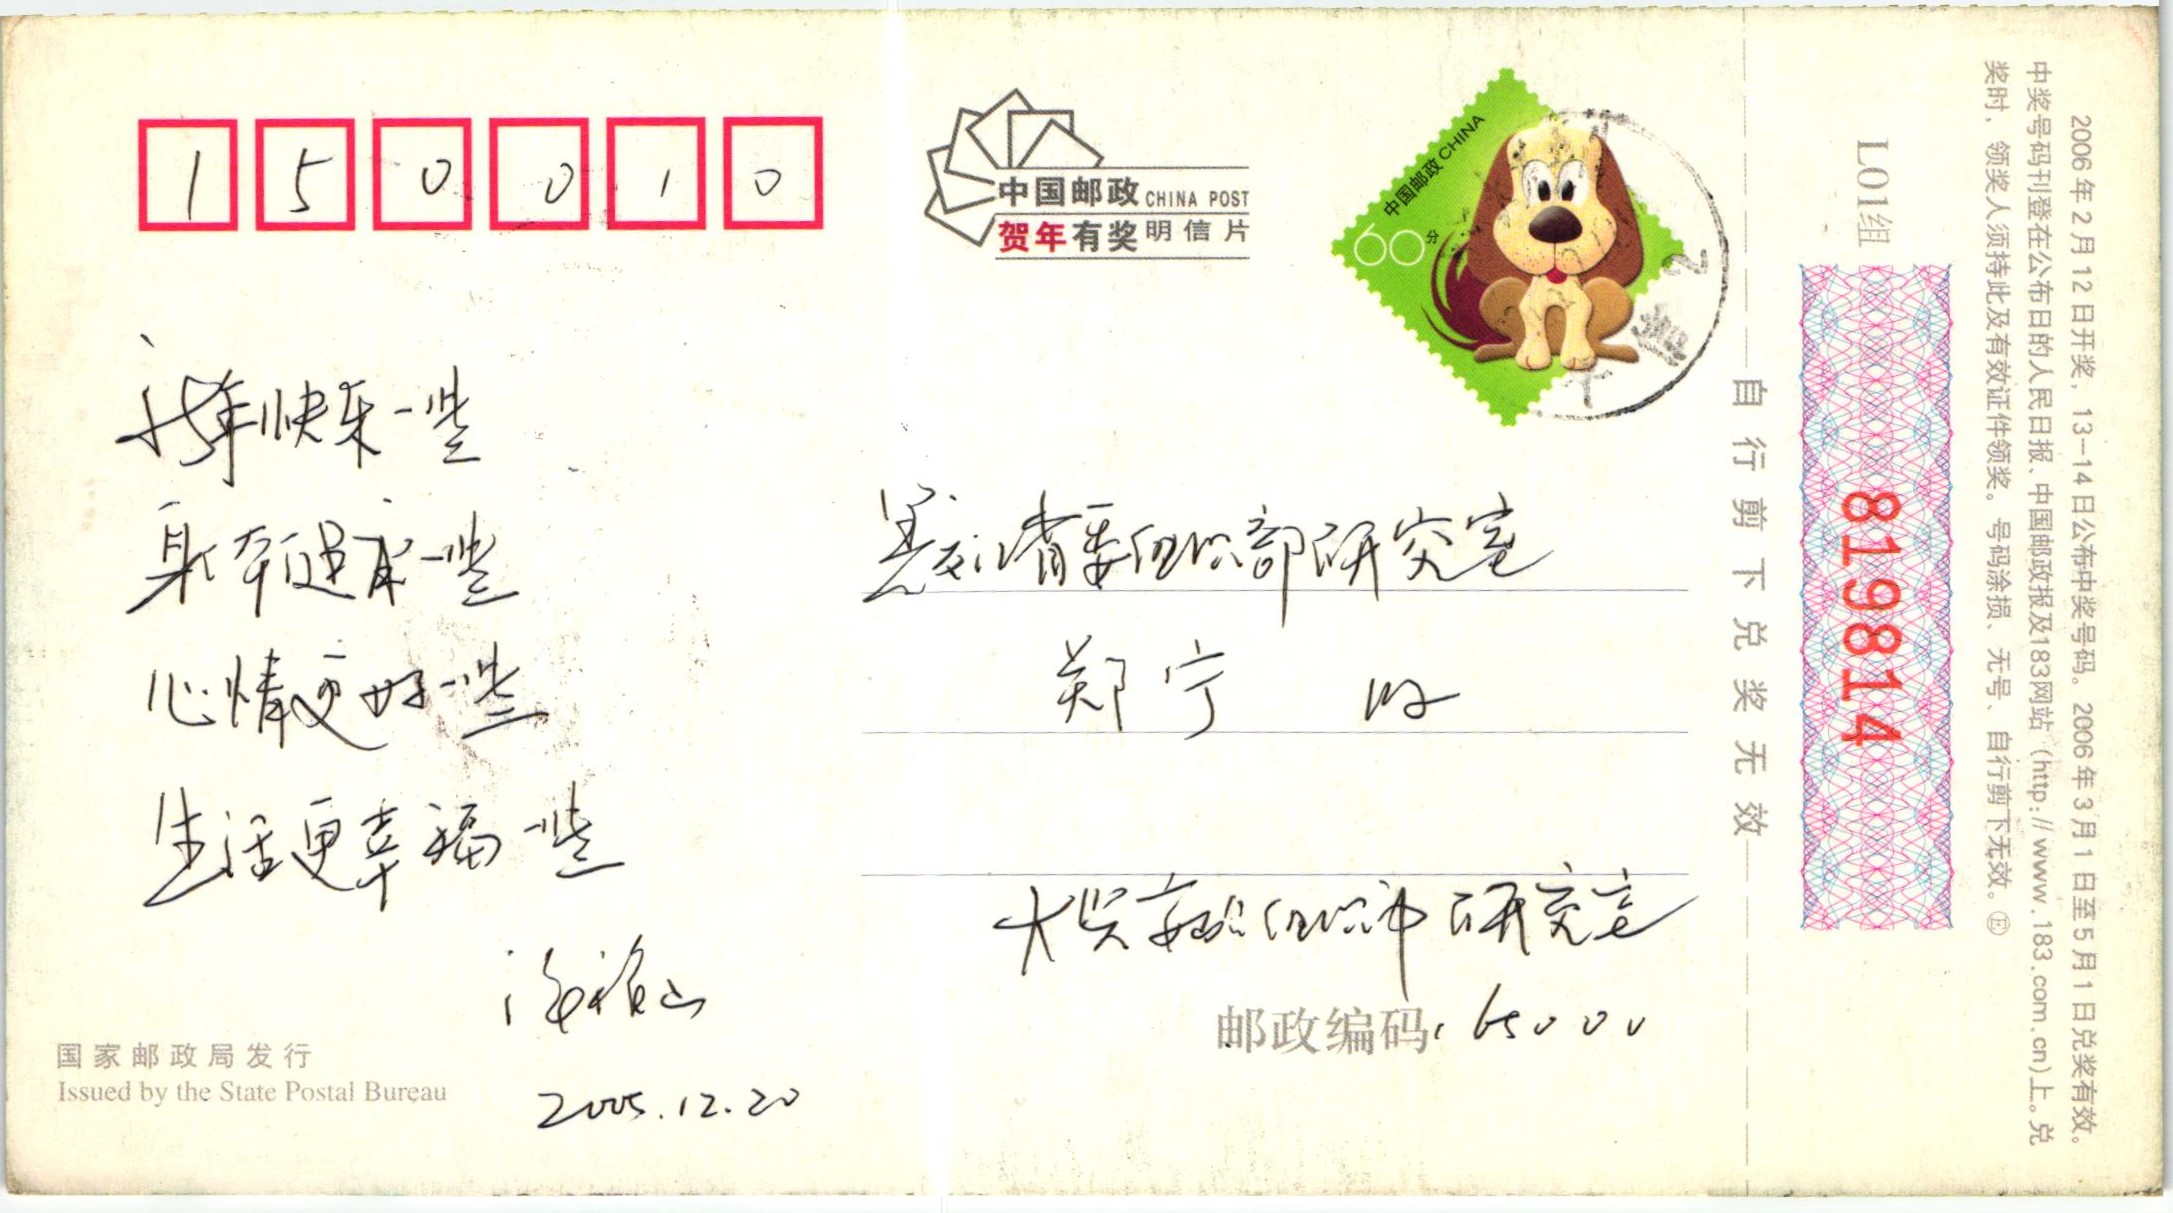 150010
中国邮政 CHINA POST
贺年有奖明信片
中国邮政 CHINA
60分
新年快乐一些
身体健康一些
心情更好一些
生活更幸福一些
2005.12.20
国家邮政局发行
Issued by the State Postal Bureau
黑龙江省委组织部研究室
郑宁 收
组织部研究室
邮政编码: 165000
自行剪下兑奖无效
L01组
819814
2006年2月12日开奖，13-14日公布中奖号码。2006年3月1日至5月1日兑奖有效。
中奖号码刊登在公布日的人民日报、中国邮政报及183网站（http://www.183.com.cn)上。兑
奖时，领奖人须持此及有效证件领奖。号码涂损、无号、自行剪下无效。Ⓔ